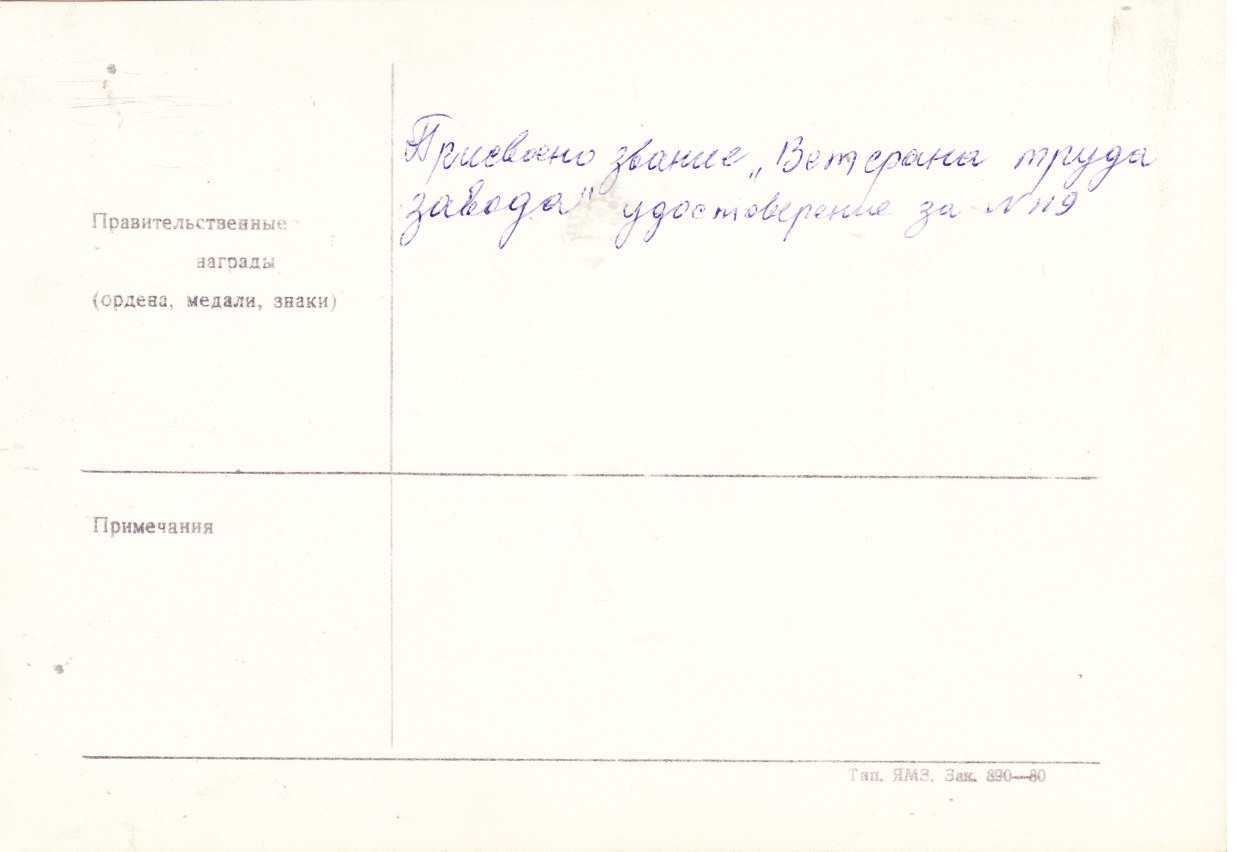 Присвоено звание „Ветерана труда
завода" удостоверение за №119
Правительственные
награды
(ордена, медали, знаки)
Примечания
Тип. ЯМЗ. Зак. 890—80